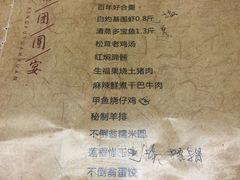 团圆宴
百年好合圈
白灼基围虾0.8斤
清蒸多宝鱼1.3斤
松茸老鸡汤
红焖蹄髈
生福果烧土猪肉
麻辣鲜煮干巴牛肉
甲鱼烧仔鸡
秘制羊排
不倒翁糯米圆
不倒翁蛋饺